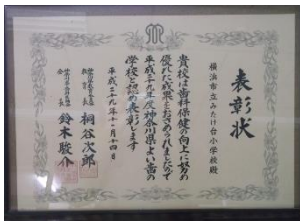 表彰状
横浜市立みたけ台小学校殿
貴校は歯科保健の向上に努め
優れた成果をおさめられましたので
平成二十九年度神奈川県よい歯の
学校と認め表彰します
平成二十九年十一月十四日
桐谷次郎
鈴木駿介